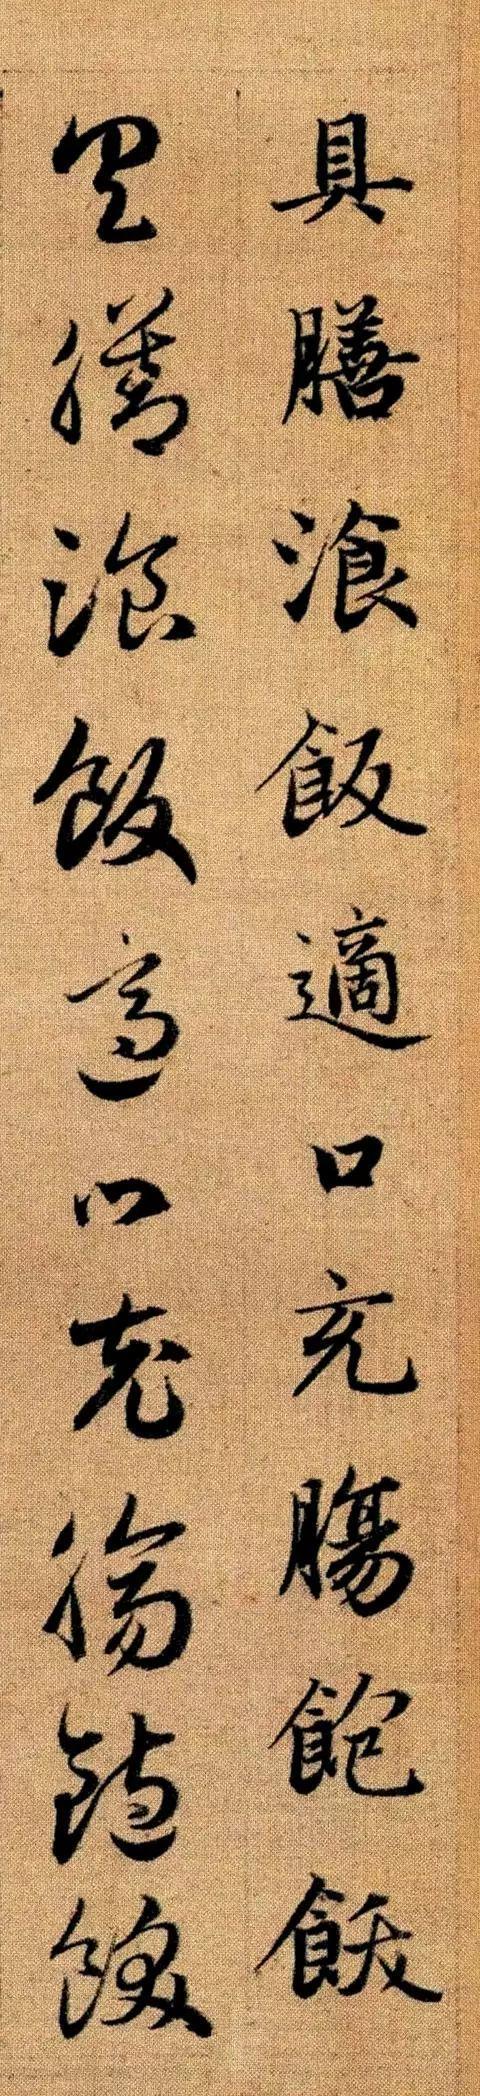 具膳湌飯適口充膓飽飫
具膳湌飯適口充膓飽飫